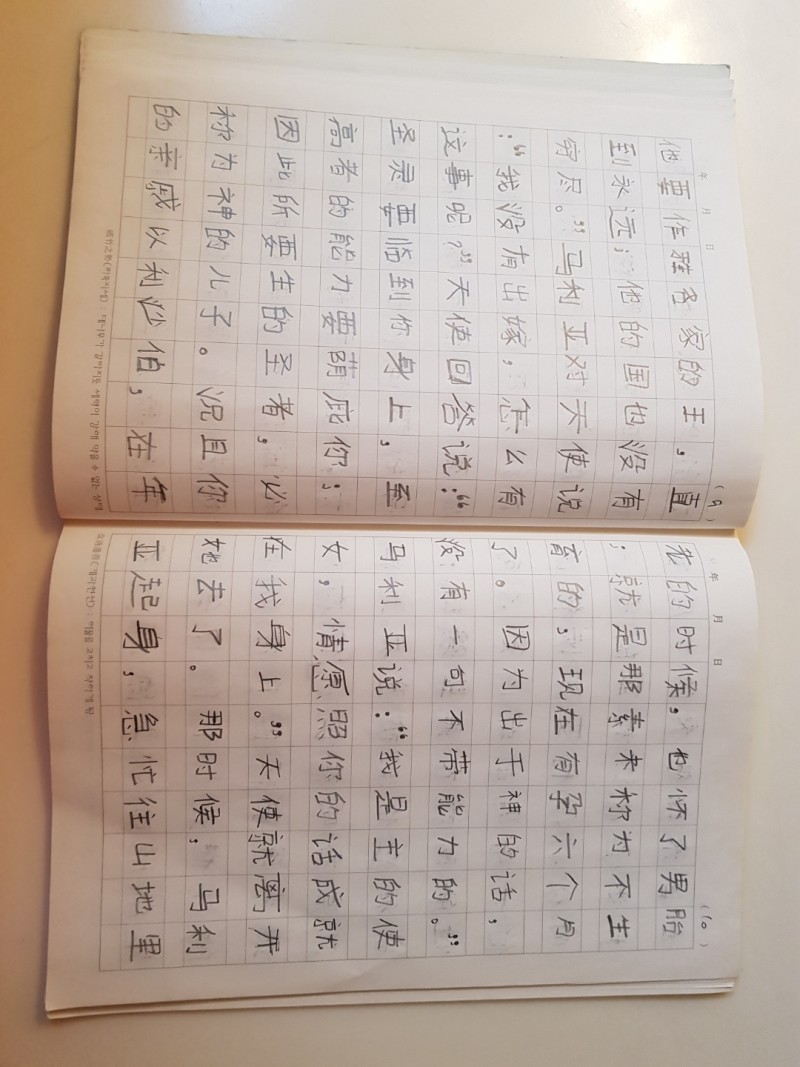 年 月 日
(9)
他要作雅各家的王，直
到永远；他的国也没有
穷尽。”马利亚对天使说
：“我没有出嫁，怎么有
这事呢？”天使回答说：“
圣灵要临到你身上，至
高者的能力要荫庇你；
因此所要生的圣者，必
称为神的儿子。况且你
的亲戚以利沙伯，在年
破竹之勢(파죽지세) : 대나무가 갈라지듯 세력이 강해 막을 수 없는 상태
年 月 日
(10)
老的时候，也怀了男胎
；就是那素来称为不生
育的，现在有孕六个月
了。因为出于神的话，
没有一句不带能力的。”
马利亚说：“我是主的使
女，情愿照你的话成就
在我身上。”天使就离开
她去了。那时候，马利
亚起身，急忙往山地里
改過遷善(개과천선) : 허물을 고치고 착하게 됨